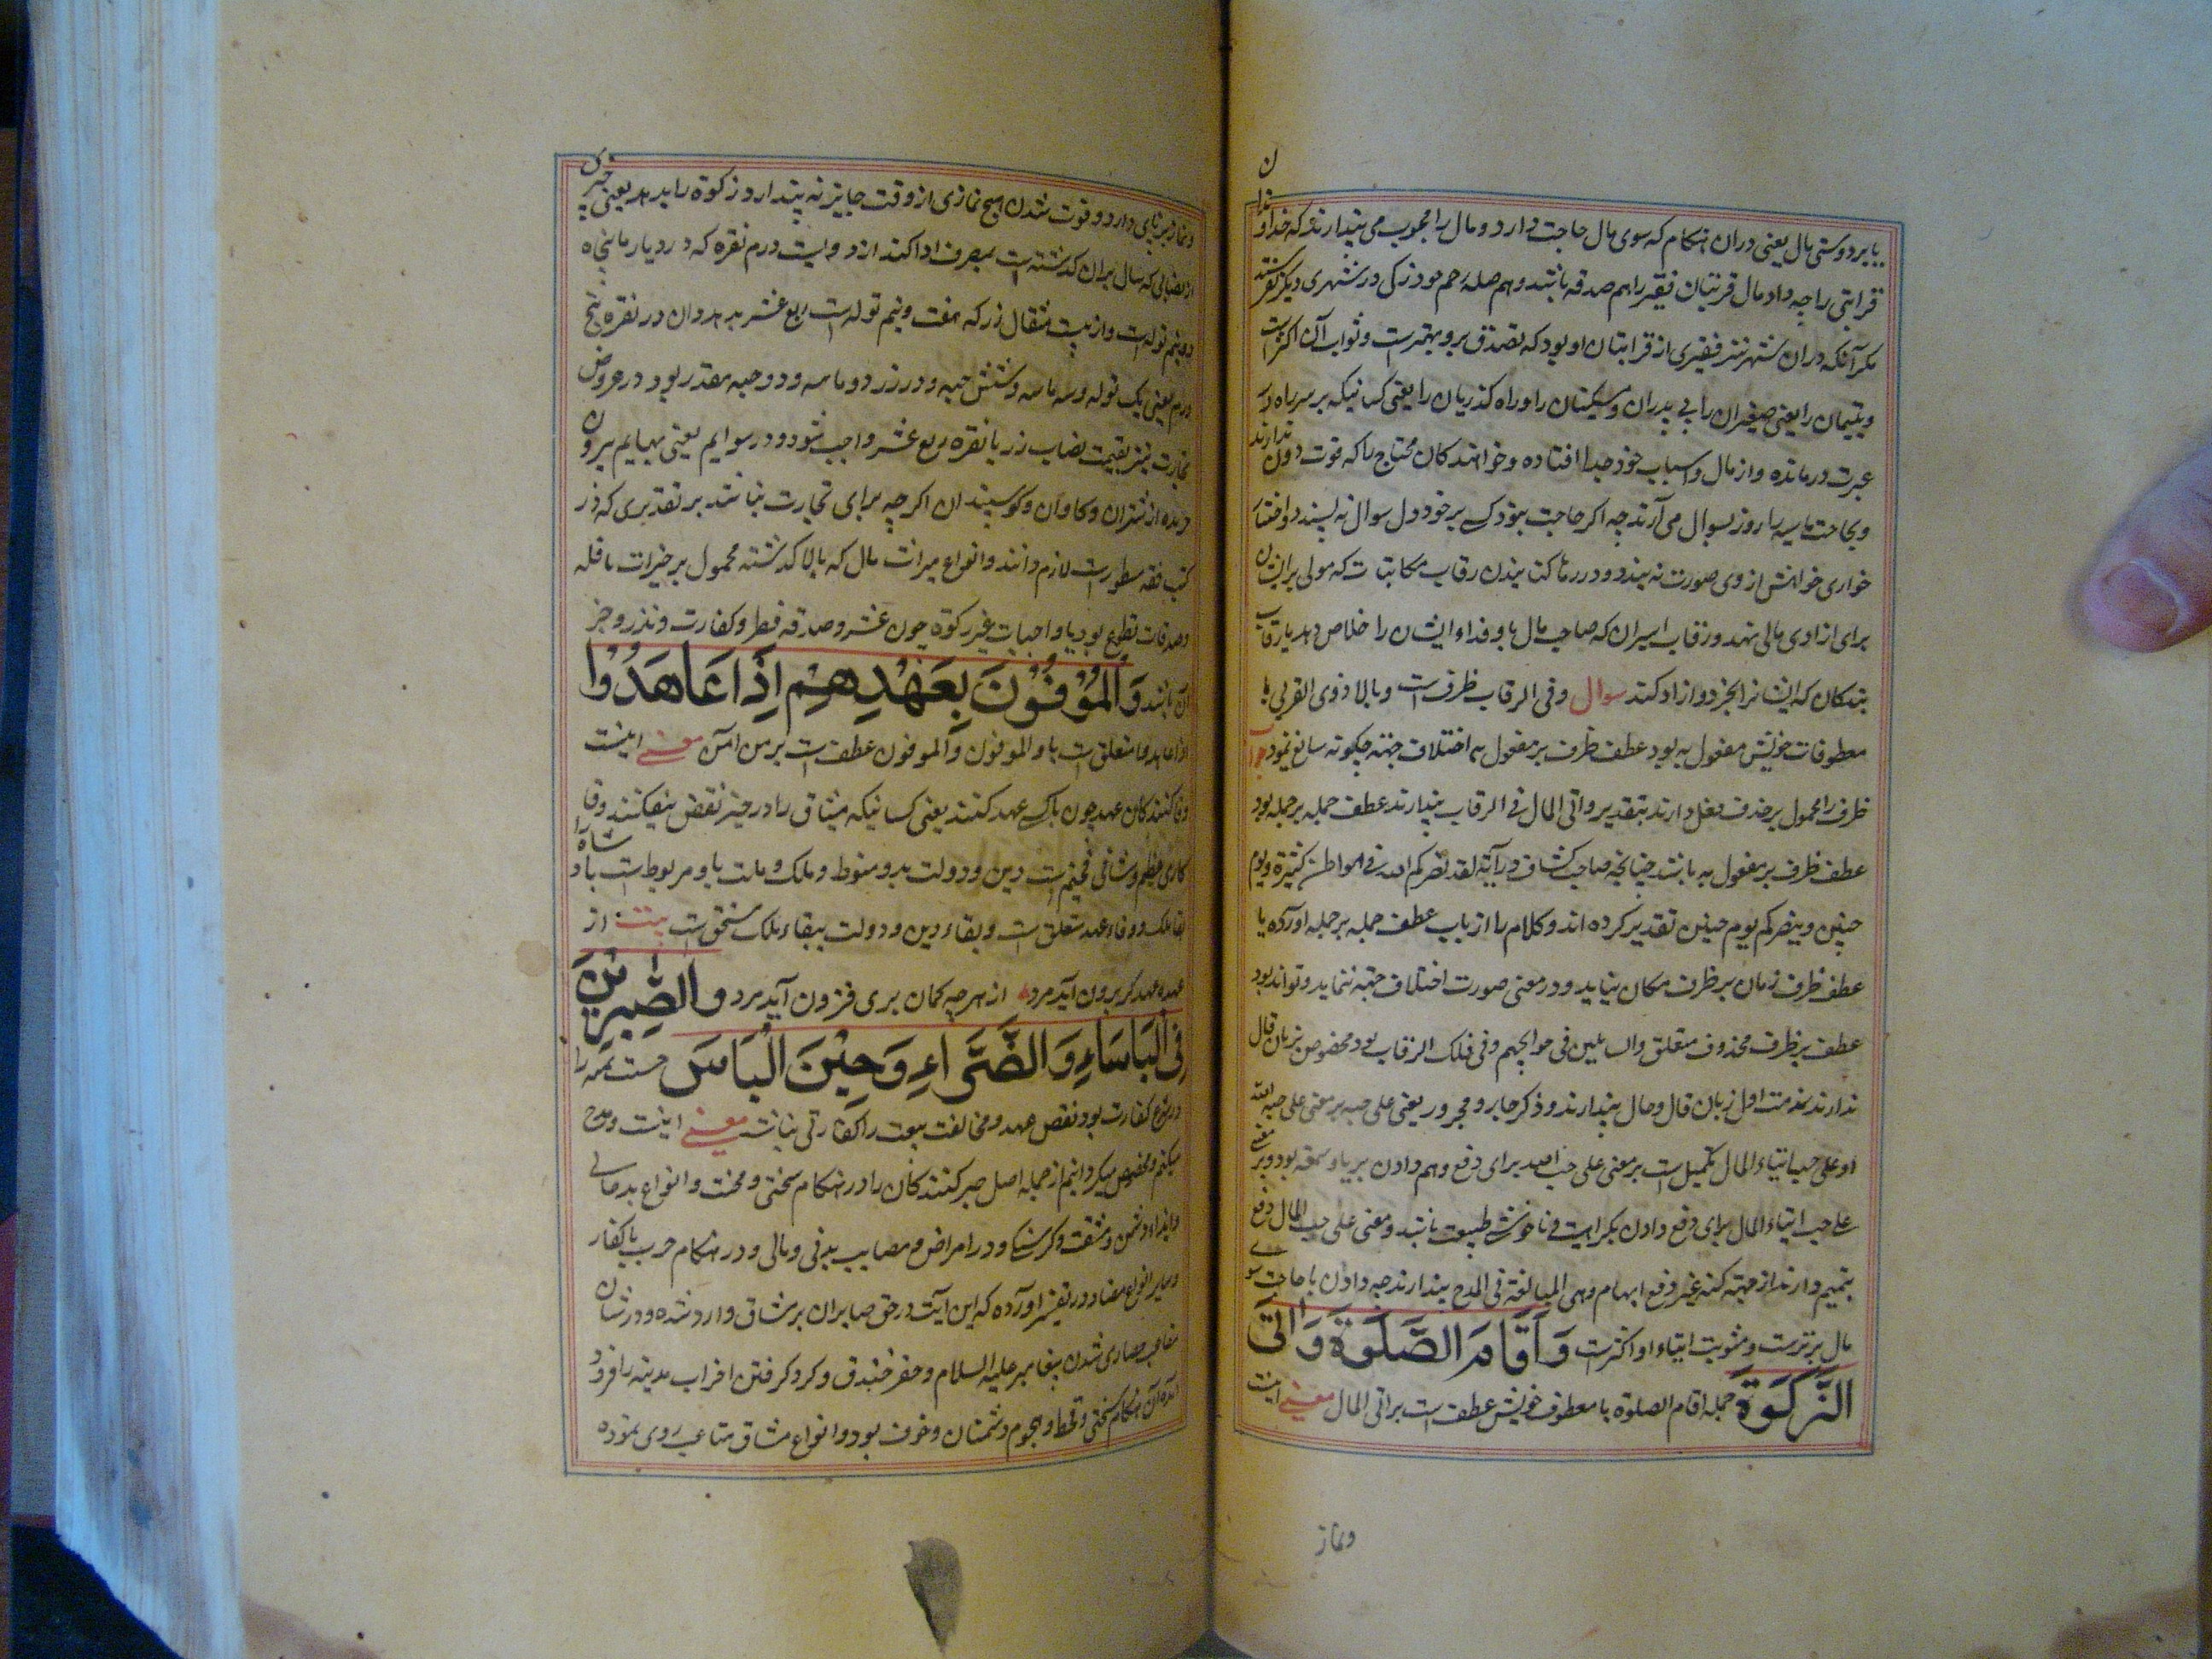 یا بر دوستی مال یعنی دران هنکام که سوی مال حاجت دارد و مال را محبوب می پندارند که خداوندا
قرابتی را چه داد مال قربتیان فقیر را هم صدقه باشد و هم صله رحم بود زکی در شهری دیکر نفرستند
مکر آنکه دران شهر نیز فقیری از قرابتیان او بود که تصدق برو بهتر ست و ثواب آن اکثر است
و یتیمان را یعنی صغیران را بی پدران و مسکینان را و راه کذریان را یعنی کسانیکه بر سر راه
عبرت درمانده و از مال و اسباب خود جدا افتاده و خواهندکان محتاج را که قوت دون ندارند
و بحاجت ماسه را روز بسوال می آرند چه اکر حاجت نبود کسی بر خود دل سوال نه پسندد و اختیار
خواری خواهش از وی صورت نه بندد و در رها کنانیدن رقاب مکاتبات که مولی برایشان
برای ازادی مالی نهد و رقاب اسیران که صاحب مال با و فداء ایشان را خلاص دهد یا رقاب
بندکان که ایشانرا بخرد و ازاد کند سوال و فی الرقاب ظرف است و بالا ذوی القربی با
معطوفات خویش مفعول به بود عطف ظرف بر مفعول به اختلاف جهته چکونه سایغ نمود جواب
ظرف را محمول بر حذف فعل دارند بتقدیر و اتی المال فی الرقاب پندارند عطف جمله بر جمله بود
عطف ظرف بر مفعول به نباشد چنانچه صاحب کشاف در آیة لقد نصرکم الله فی مواطن کثیرة و یوم
حنین و ینصرکم یوم حنین تقدیر کرده اند و کلام را از باب عطف جمله بر جمله آورده یا
عطف ظرف زمان بر ظرف مکان نیاید و در معنی صورت اختلاف جهته ننماید و تواند بود
عطف بر ظرف محذوف متعلق والسایلین فی حوایجهم و فی فلک الرقاب بود مخصوص بزبان قال
ندارند بذمت اول زبان قال و حال پندارند و ذکر جار و مجرور یعنی علی حبه بر معنی علی حب الله
او علی حب ایتاء المال تکمیل است بر معنی علی حب الله برای دفع وهم دادن بریا و سمعه بود و بر معنی
علی حب ایتاء المال برای دفع دادن بکراهیت و ناخوشی طبیعت باشد و معنی علی حب المال دفع
تتمیم دارند از جهته نکته غیر دفع ابهام و هی المبالغة فی المدح پندارند چه دادن با حاجت سوی
مال برتر ست و مثوبت ایتاء او اکثر ست وَأَقَامَ الصَّلٰوةَ وَاٰتَى
الزَّكٰوةَ جمله اقام الصلوة با معطوف خویش عطف است بر اتی المال معنی اینست
و نماز
و نماز بر پای دارد و فوت شدن هیچ نمازی از وقت جایز نه پندارد و زکوة را بدهد یعنی چیزی
از نصابی که سال بران کذشته است بمصرف ادا کند از دویست درم نقره که در دیار ما پنجاه
دو نیم توله است و از بیست مثقال زر که هفت و نیم توله است ربع عشر بدهد و ان در نقره پنج
درم یعنی یک توله و سه ماسه و شش حبه و در زر دو ماسه و دو حبه مقدر بود در عروض
تجارت نیز بقیمت نصاب زر یا نقره ربع عشر واجب شود و در سوایم یعنی بهایم بیرون
چرنده از شتران و کاوان و کوسپندان اکر چه برای تجارت نباشد بر تقدیری که در
کتب فقه مسطور ست لازم دانند و انواع میراث مال که بالا کذشته محمول بر خیرات نافله
و صدقات تطوع بود یا واجبات غیر زکوة چون عشر و صدقه فطر و کفارت و نذر و جز
آن باشد وَالْمُوْفُوْنَ بِعَهْدِهِمْ اِذَا عَاهَدُوْا
اذا عاهدوا متعلق است با و الموفون و الموفون عطف است بر من امن معنی اینست
وفا کنندکان عهد چون باکسی عهد کنند یعنی کسانیکه میثاق را در حیز نقض نیفکنند وفا
کاری عظیم و شانی فخیم است دین و دولت بدو منوط و ملک و ملت باو مربوط است باد شاه را
بقا ملک و وفاء عهد متعلق است و بقاء دین و دولت ببقاء ملک مستحق است بیت از
عهده عهد کر برون آید مرد از هر چه کمان بری فزون آید مرد وَالصّٰبِرِيْنَ
فِى الْبَاْسَاۤءِ وَالضَّرَّاۤءِ وَحِيْنَ الْبَاْسَ
در نوع کفارت بود نقص عهد و مخالفت بیعت را کفارتی نباشد معنی اینست و مدح
میکنم و مخصوص میکردانیم از جمله اصل صبر کنندکان را در هنکام سختی و محنت و انواع بدحالی
و ایذاء دشمن و مشقت و کرسنکی و در امراض و مصایب بدنی و مالی و در هنکام حرب با کفار
و سایر انواع مضاد در تفسیر آورده که این آیت در حق صابران بر مشاق وارد شده و در شان
مصاحب حصاری شدن پیغامبر علیه السلام و حفر خندق و کرد کرفتن احزاب مدینه را فرود
آمده آن هنکام سختی و قحط و هجوم دشمنان و خوف بود و انواع مشاق متاعب روی نموده